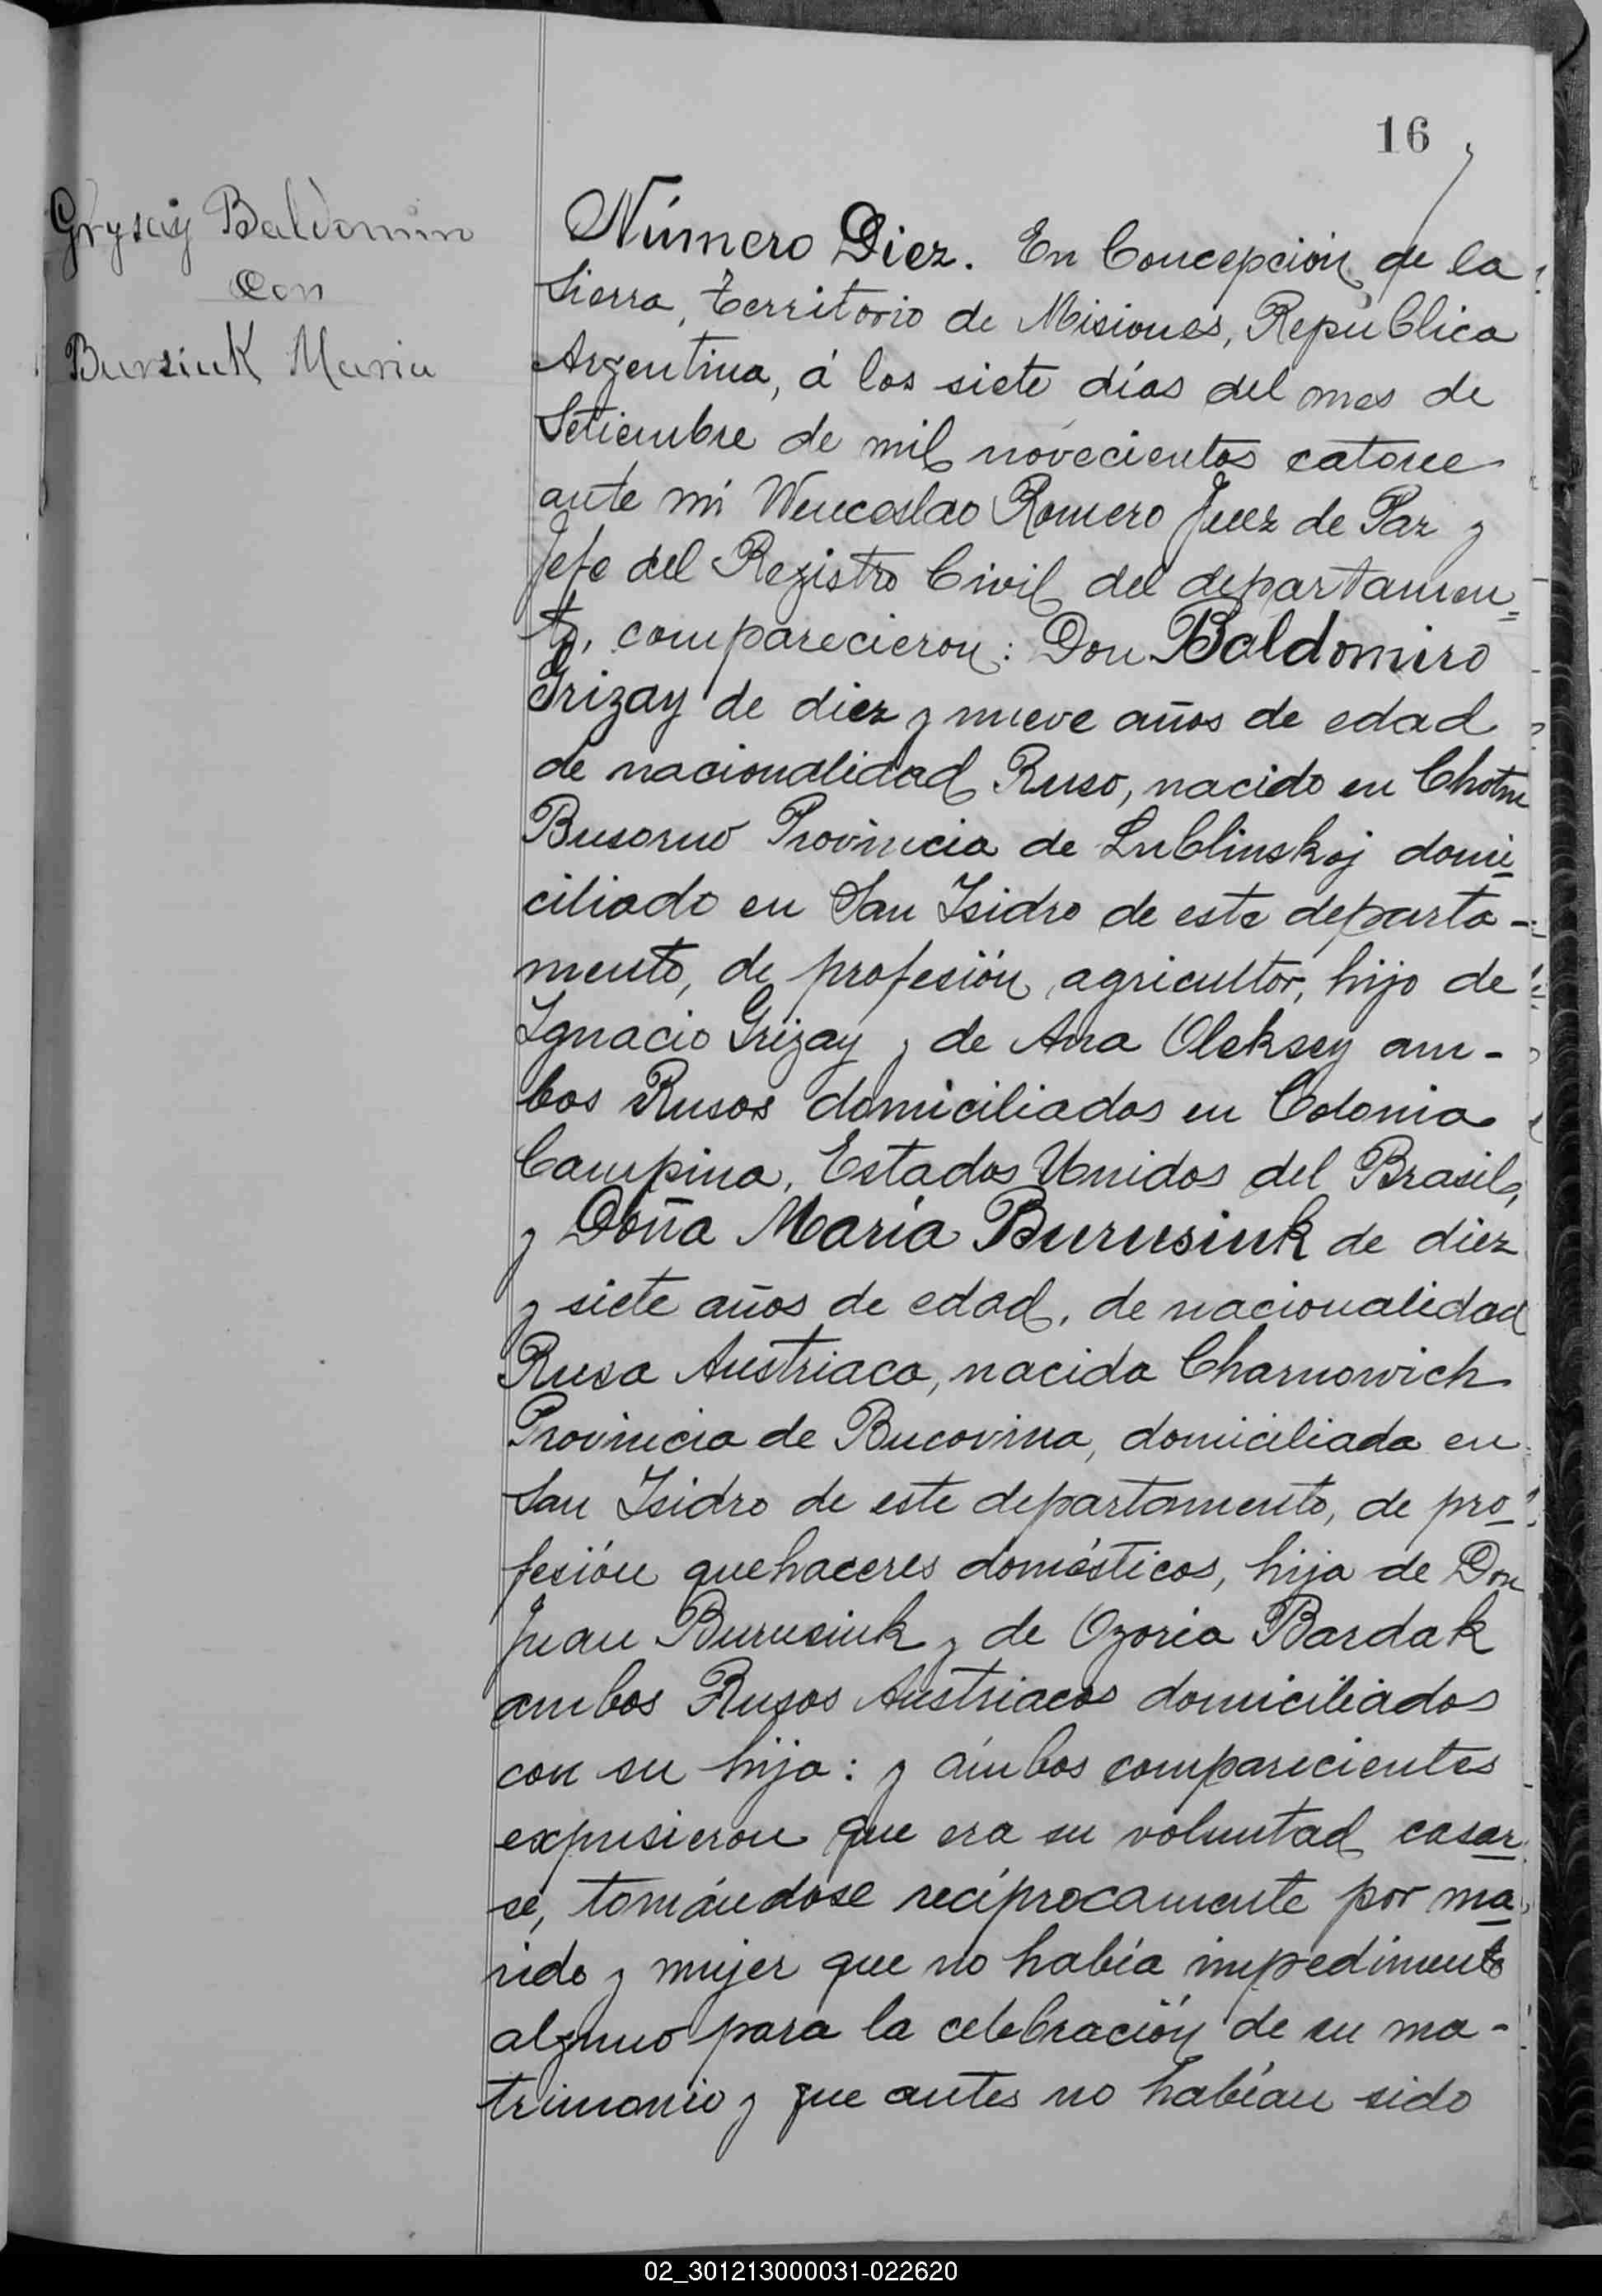 16
Grysay Baldomiro
Con
Bursiuk Maria
Número Diez. En Concepción de la
Sierra, territorio de Misiones, República
Argentina, á los siete días del mes de
Setiembre de mil novecientos catorce
ante mí Wenceslao Romero Juez de Paz y
Jefe del Registro Civil del departamen=
to, comparecieron: Don Baldomiro
Grizay de diez y nueve años de edad
de nacionalidad Ruso, nacido en Chotm
Busorno Provincia de Lublinskoj domi
ciliado en San Isidro de este departa-
mento, de profesión agricultor, hijo de
Ignacio Grizay y de Ana Oleksey am-
bos Rusos domiciliados en Colonia
Campina, Estados Unidos del Brasil,
y Doña María Burusiuk de diez
y siete años de edad, de nacionalidad
Rusa Austriaca, nacida Charnowich
Provincia de Bucovina, domiciliada en
San Isidro de este departamento, de pro
fesión quehaceres domésticos, hija de Don
Juan Burusiuk y de Ozoria Bardak
ambos Rusos Austriacos domiciliados
con su hija: y ámbos comparecientes
expusieron que era su voluntad casar
se, tomándose recíprocamente por ma
rido y mujer que no había impedimento
alguno para la celebración de su ma-
trimonio y que antes no habían sido
02_301213000031-022620